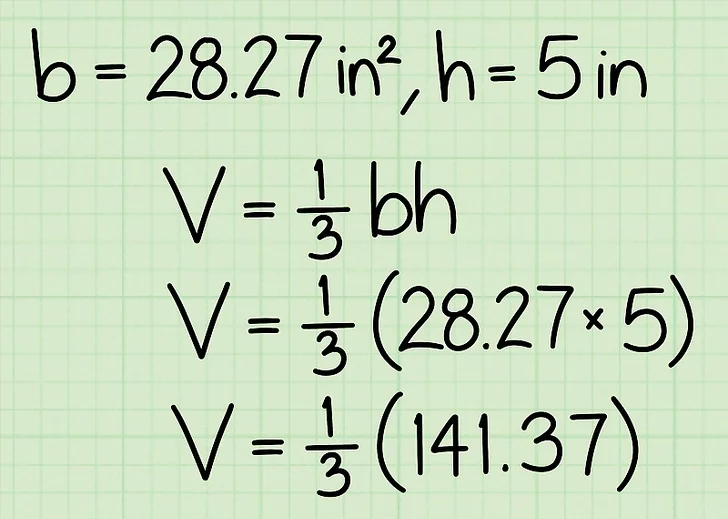 b = 28.27 in², h = 5 in
V = 1/3 bh
V = 1/3 (28.27 × 5)
V = 1/3 (141.37)